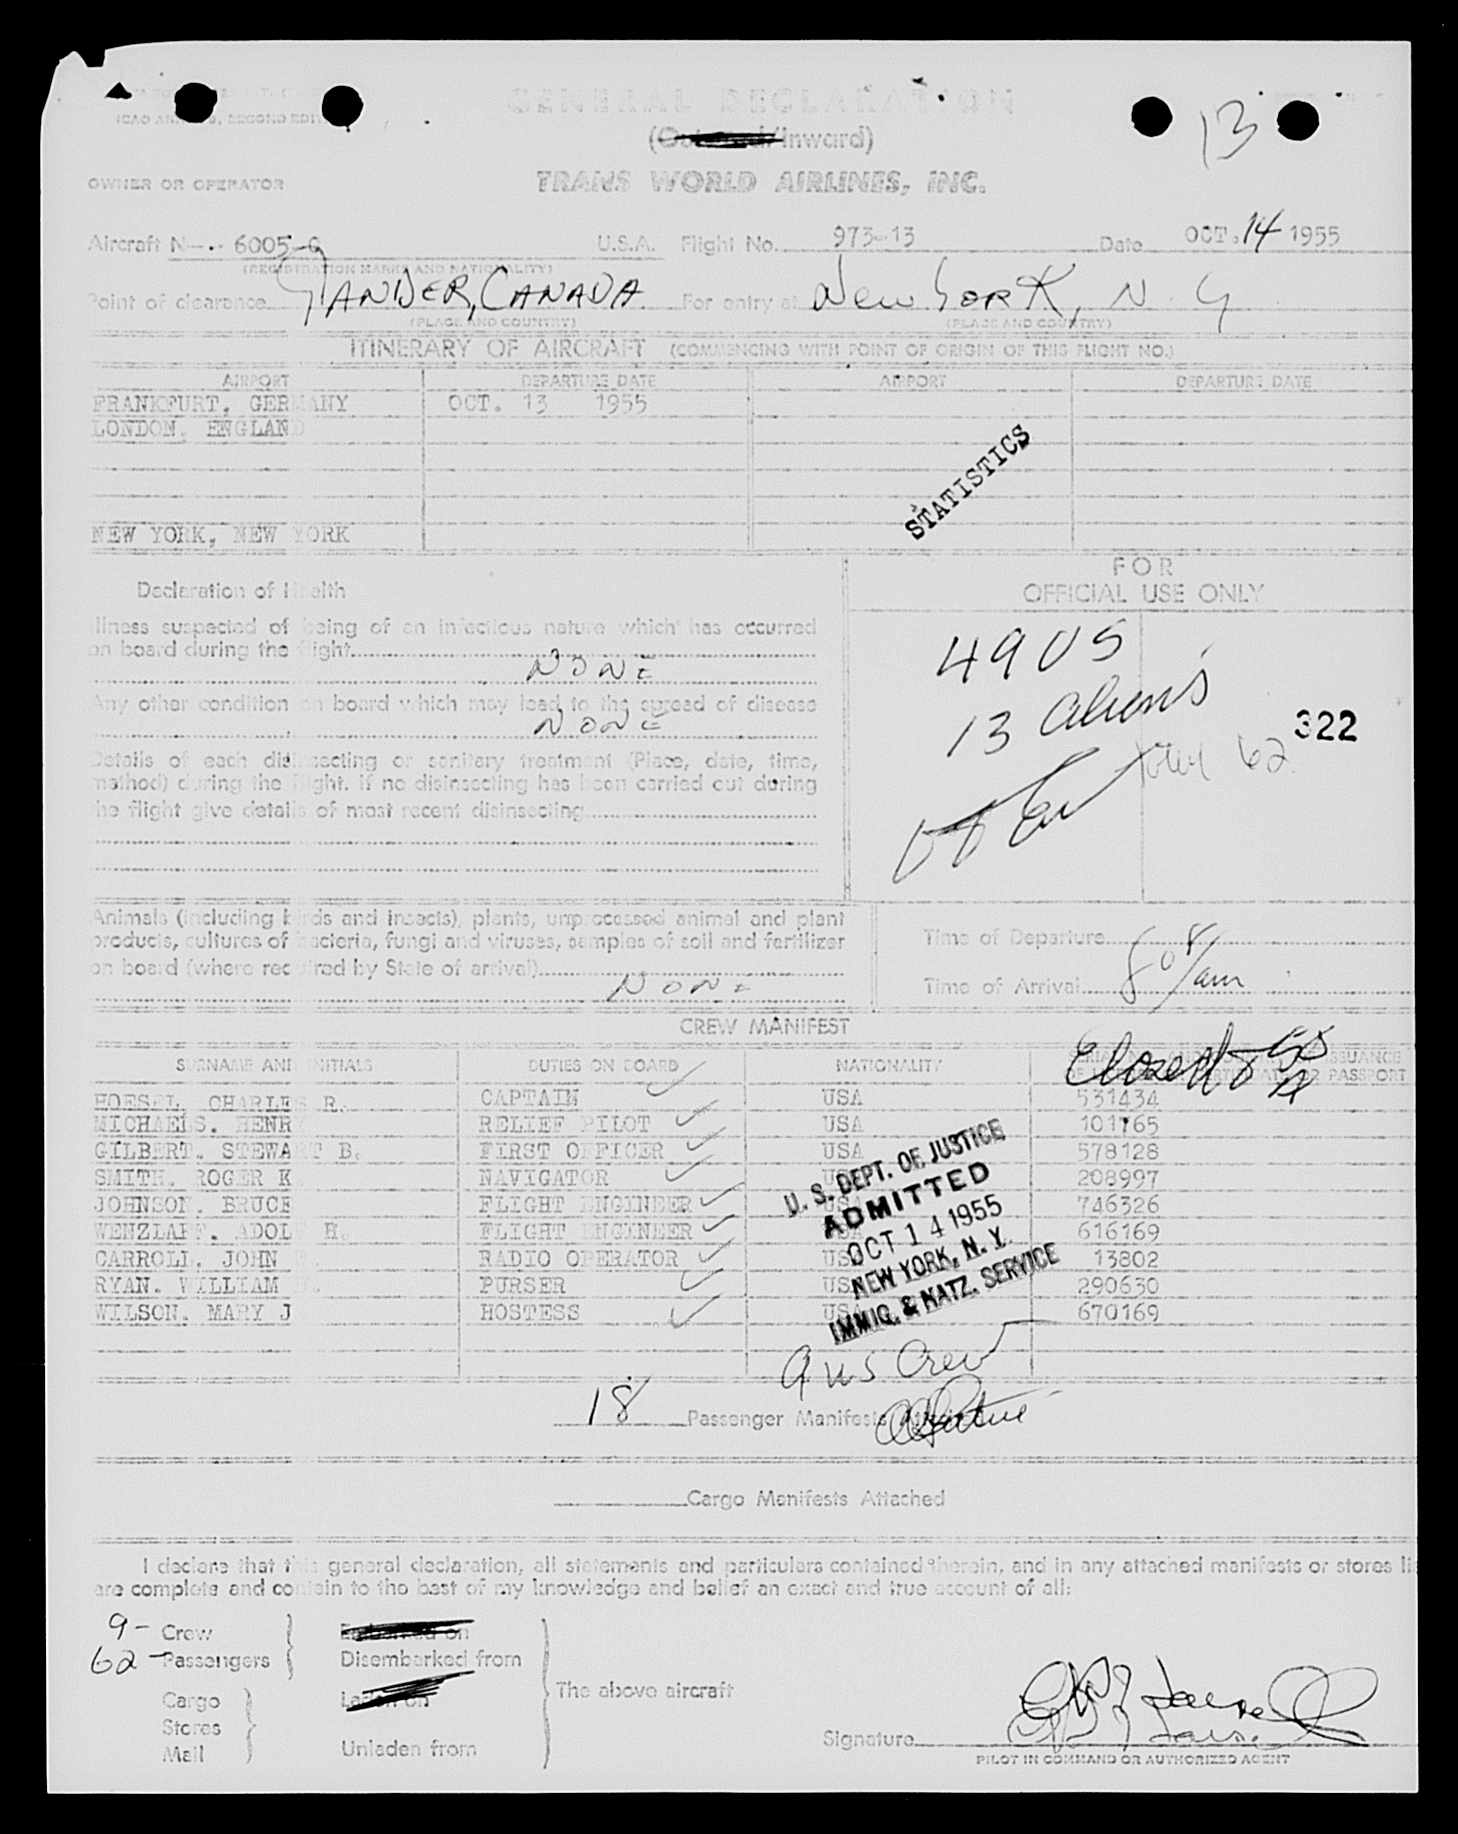 GENERAL DECLARATION
13
(Outward/Inward)
OWNER OR OPERATOR TRANS WORLD AIRLINES, INC.
Aircraft N-- 6005-C U.S.A. Flight No. 973-13 Date OCT. 14 1955
(REGISTRATION MARKS AND NATIONALITY)
Point of clearance GANDER, CANADA For entry at New York, N.Y
(PLACE AND COUNTRY) (PLACE AND COUNTRY)
ITINERARY OF AIRCRAFT (COMMENCING WITH POINT OF ORIGIN OF THIS FLIGHT NO.)
AIRPORT DEPARTURE DATE AIRPORT DEPARTURE DATE
FRANKFURT, GERMANY OCT. 13 1955
LONDON, ENGLAND
STATISTICS
NEW YORK, NEW YORK
Declaration of Health
FOR
OFFICIAL USE ONLY
Illness suspected of being of an infectious nature which has occurred
on board during the flight
NONE
Any other condition on board which may lead to the spread of disease
NONE
Details of each disinsecting or sanitary treatment (Place, date, time,
method) during the flight. If no disinsecting has been carried out during
the flight give details of most recent disinsecting
49 US
13 aliens
62
322
Animals (including birds and insects), plants, unprocessed animal and plant
products, cultures of bacteria, fungi and viruses, samples of soil and fertilizer
on board (where required by State of arrival)
NONE
Time of Departure
Time of Arrival 8 08/am
CREW MANIFEST
SURNAME AND INITIALS DUTIES ON BOARD NATIONALITY
HOESEL, CHARLES R. CAPTAIN USA 531434
MICHAELS, HENR RELIEF PILOT USA 101765
GILBERT, STEWART B. FIRST OFFICER USA 578128
SMITH, ROGER K NAVIGATOR 208997
JOHNSON, BRUCE FLIGHT ENGINEER USA 746326
WENZLAFF, ADOLF H. FLIGHT ENGINEER 616169
CARROLL, JOHN RADIO OPERATOR USA 13802
RYAN, WILLIAM PURSER USA 290630
WILSON, MARY J HOSTESS USA 670169
U. S. DEPT. OF JUSTICE
ADMITTED
OCT 14 1955
NEW YORK, N. Y.
IMMIG. & NATZ. SERVICE
9 US Crew
18 Passenger Manifests Attached
Cargo Manifests Attached
I declare that this general declaration, all statements and particulars contained therein, and in any attached manifests or stores li
are complete and contain to the best of my knowledge and belief an exact and true account of all:
9- Crew Embarked on
62- Passengers Disembarked from
The above aircraft
Cargo Laden on
Stores
Mail Unladen from
Signature
PILOT IN COMMAND OR AUTHORIZED AGENT